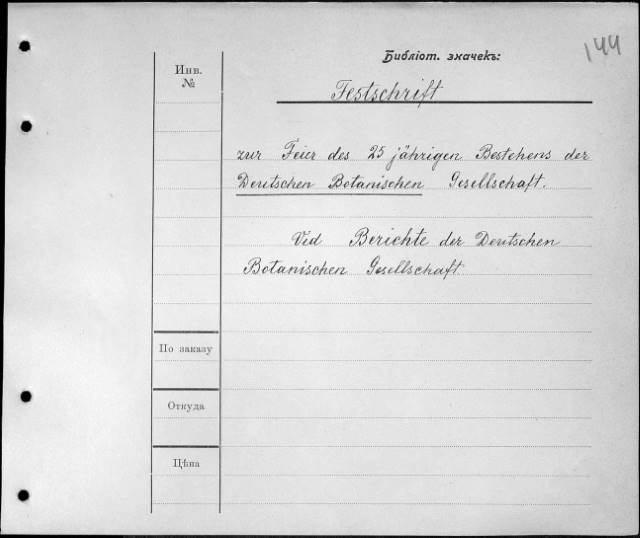 Библіот. значекъ:
144
Инв.
№
Festschrift
zur Feier des 25 jährigen Bestehens der
Deutschen Botanischen Gesellschaft.
Vid Berichte der Deutschen
Botanischen Gesellschaft.
По заказу
Откуда
Цѣна